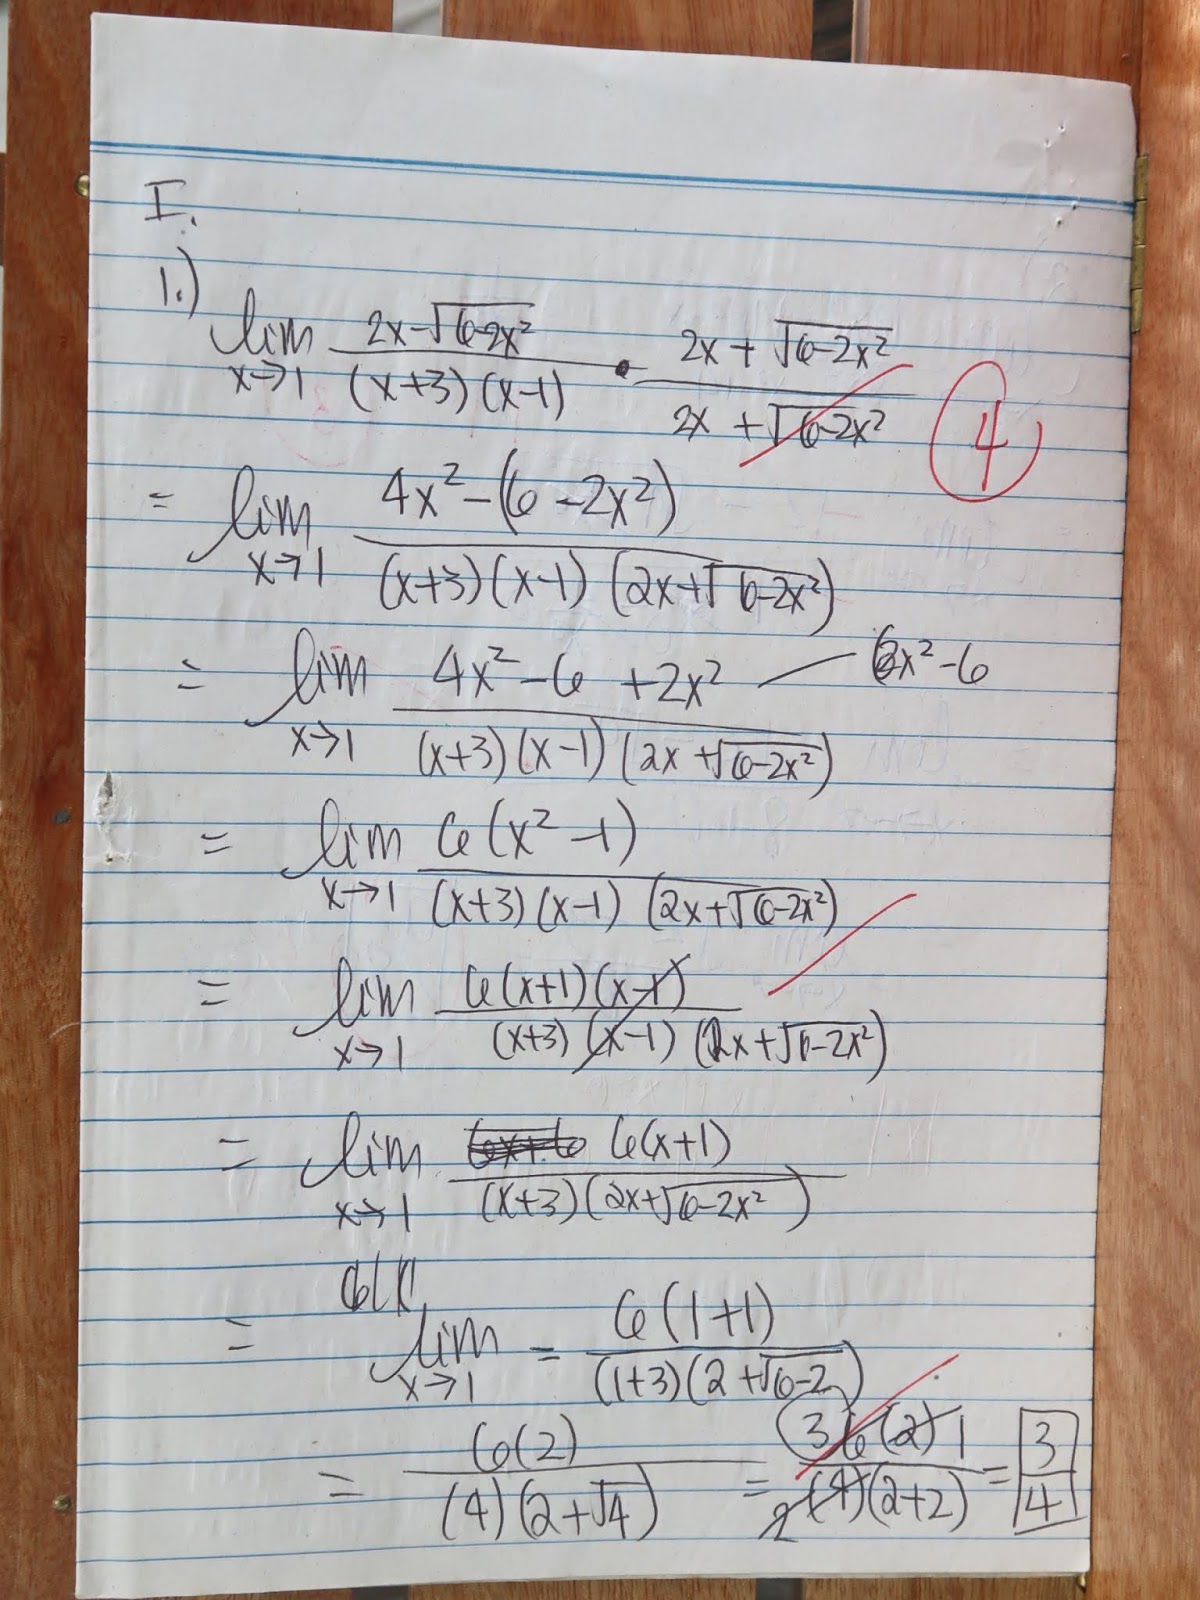 I.
1.)
lim x→1 (2x-√(6-2x²))/((x+3)(x-1)) • (2x+√(6-2x²))/(2x+√(6-2x²))
4
= lim x→1 (4x²-(6-2x²))/((x+3)(x-1)(2x+√(6-2x²)))
= lim x→1 (4x²-6+2x²)/((x+3)(x-1)(2x+√(6-2x²))) — 6x²-6
= lim x→1 6(x²-1)/((x+3)(x-1)(2x+√(6-2x²)))
= lim x→1 6(x+1)(x-1)/((x+3)(x-1)(2x+√(6-2x²)))
= lim x→1 6x+6 6(x+1)/((x+3)(2x+√(6-2x²)))
= lim x→1 = 6(1+1)/((1+3)(2+√(6-2)))
= 6(2)/((4)(2+√4)) = 3 6(2) 1/(2 (4)(2+2)) = 3/4